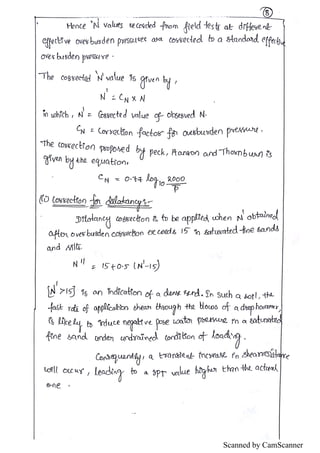 5
Hence 'N' values recorded from field tests at different
effective overburden pressures are corrected to a standard effective
overburden pressure.
The corrected 'N' value is given by,
N' = CN × N
in which, N' = Corrected value of observed N.
CN = Correction factor for overburden pressure.
The correction proposed by peck, Hanson and Thornburn is
given by the equation,
CN = 0.77 log10 2000/P
(ii) Correction for Dilatancy:-
Dilatancy correction is to be applied when N' obtained
after overburden correction exceeds 15 in saturated fine sands
and silts.
N'' = 15 + 0.5 (N' - 15)
[N' > 15] is an indication of a dense sand. In such a soil, the
fast rate of application shear through the blows of a drop hammer,
is likely to induce negative pore water pressure in a saturated
fine sand under undrained condition of loading.
Consequently, a transient increase in shear resistance
will occur, leading to a SPT value higher than the actual
one.
Scanned by CamScanner